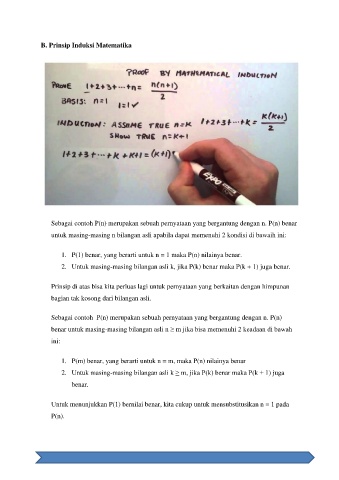 B. Prinsip Induksi Matematika
PROOF BY MATHEMATICAL INDUCTION
PROVE 1+2+3+···+n = n(n+1)/2
BASIS: n=1 1=1 ✓
INDUCTION: ASSUME TRUE n=K 1+2+3+···+K = K(K+1)/2
SHOW TRUE n=K+1
1+2+3+···+K+K+1 = (K+1)
EXPO
Sebagai contoh P(n) merupakan sebuah pernyataan yang bergantung dengan n. P(n) benar
untuk masing-masing n bilangan asli apabila dapat memenuhi 2 kondisi di bawaih ini:
1. P(1) benar, yang berarti untuk n = 1 maka P(n) nilainya benar.
2. Untuk masing-masing bilangan asli k, jika P(k) benar maka P(k + 1) juga benar.
Prinsip di atas bisa kita perluas lagi untuk pernyataan yang berkaitan dengan himpunan
bagian tak kosong dari bilangan asli.
Sebagai contoh P(n) merupakan sebuah pernyataan yang bergantung dengan n. P(n)
benar untuk masing-masing bilangan asli n ≥ m jika bisa memenuhi 2 keadaan di bawah
ini:
1. P(m) benar, yang berarti untuk n = m, maka P(n) nilainya benar
2. Untuk masing-masing bilangan asli k ≥ m, jika P(k) benar maka P(k + 1) juga
benar.
Untuk menunjukkan P(1) bernilai benar, kita cukup untuk mensubstitusikan n = 1 pada
P(n).